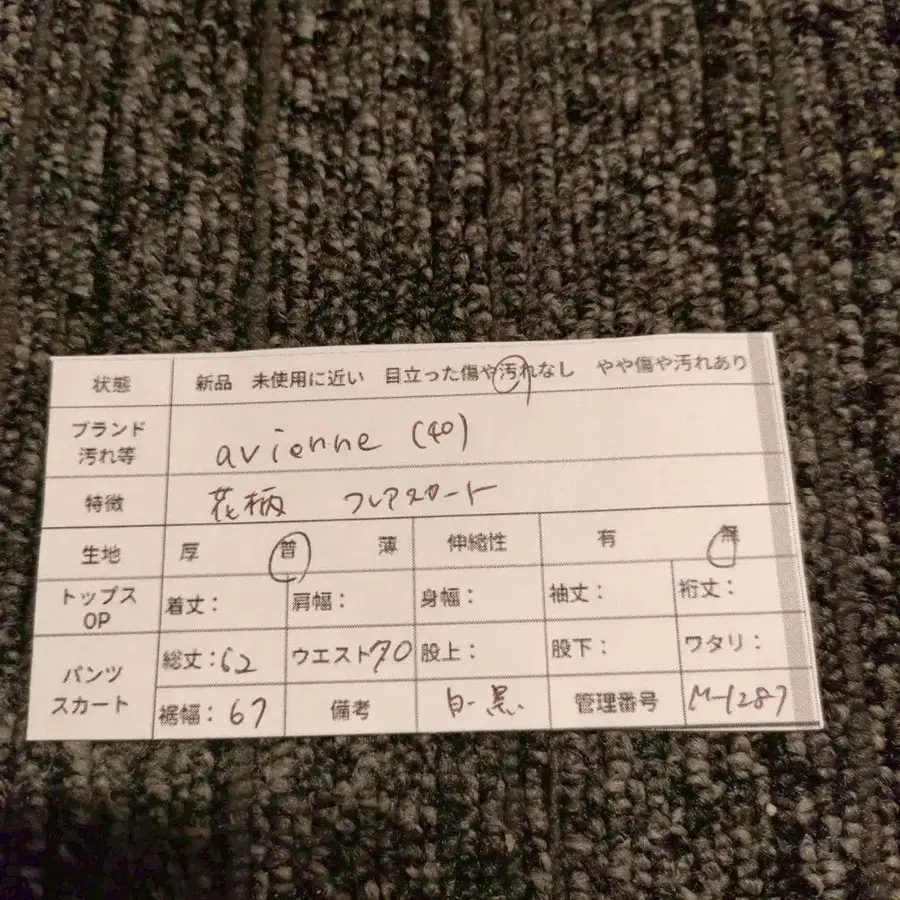 状態 新品 未使用に近い 目立った傷や汚れなし やや傷や汚れあり
ブランド
汚れ等 avienne (40)
特徴 花柄 フレアスカート
生地 厚 普 薄 伸縮性 有 無
トップス
OP 着丈： 肩幅： 身幅： 袖丈： 裄丈：
パンツ
スカート 総丈：62 ウエスト70 股上： 股下： ワタリ：
裾幅：67 備考 白・黒 管理番号 M-1287